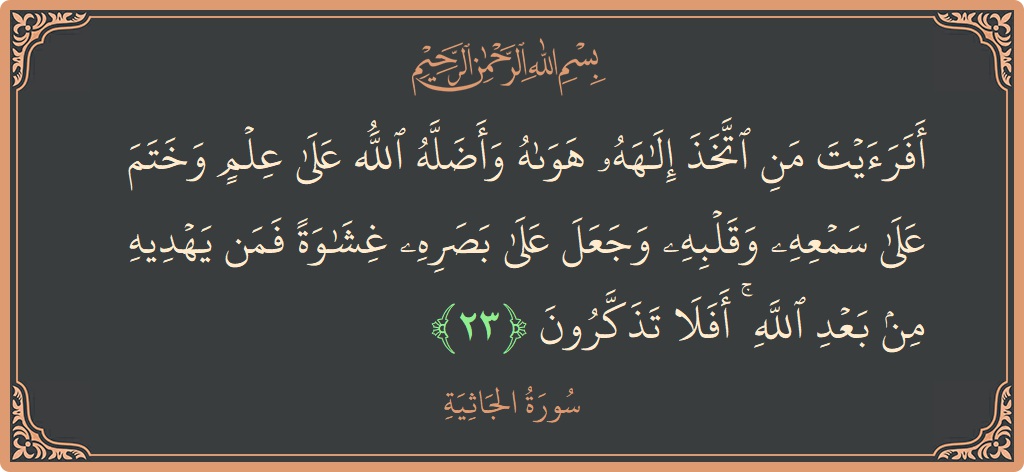 بِسْمِ اللَّهِ الرَّحْمَٰنِ الرَّحِيمِ
أَفَرَءَيْتَ مَنِ ٱتَّخَذَ إِلَٰهَهُۥ هَوَىٰهُ وَأَضَلَّهُ ٱللَّهُ عَلَىٰ عِلْمٍ وَخَتَمَ
عَلَىٰ سَمْعِهِۦ وَقَلْبِهِۦ وَجَعَلَ عَلَىٰ بَصَرِهِۦ غِشَٰوَةً فَمَن يَهْدِيهِ
مِنۢ بَعْدِ ٱللَّهِ ۚ أَفَلَا تَذَكَّرُونَ ﴿٢٣﴾
سُورَةُ الجَاثِيَةِ